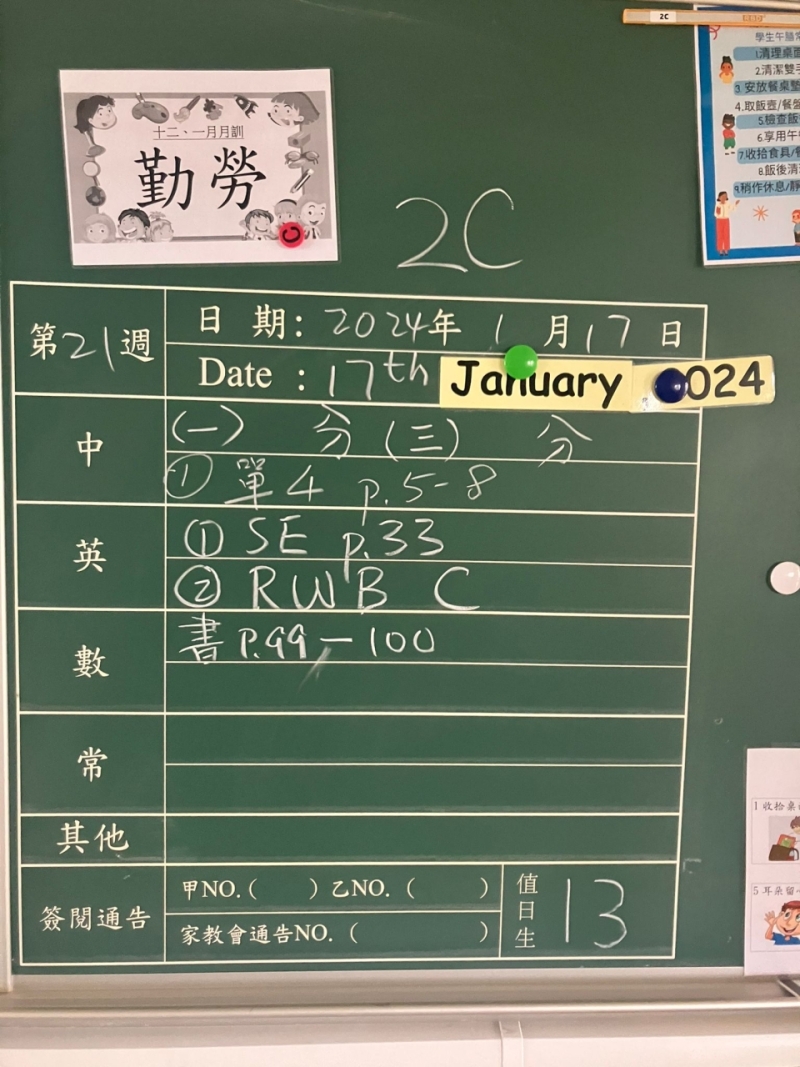 2C
學生午膳
1.清理桌面
2.清潔雙手
3.安放餐桌墊
4.取飯壺/餐盤
5.檢查飯
6.享用午
7.收拾食具/
8.飯後清
9.稍作休息/靜
十二、一月月訓
勤勞
2C
第21週
日期：2024年1月17日
Date : 17th January 2024
中
(一) 分 (三) 分
① 單4 p.5-8
英
① SE p.33
② RWB C
數
書 P.99-100
常
其他
簽閱通告
甲NO.( ) 乙NO.( )
家教會通告NO.( )
值日生 13
1 收拾桌
5 耳朵留